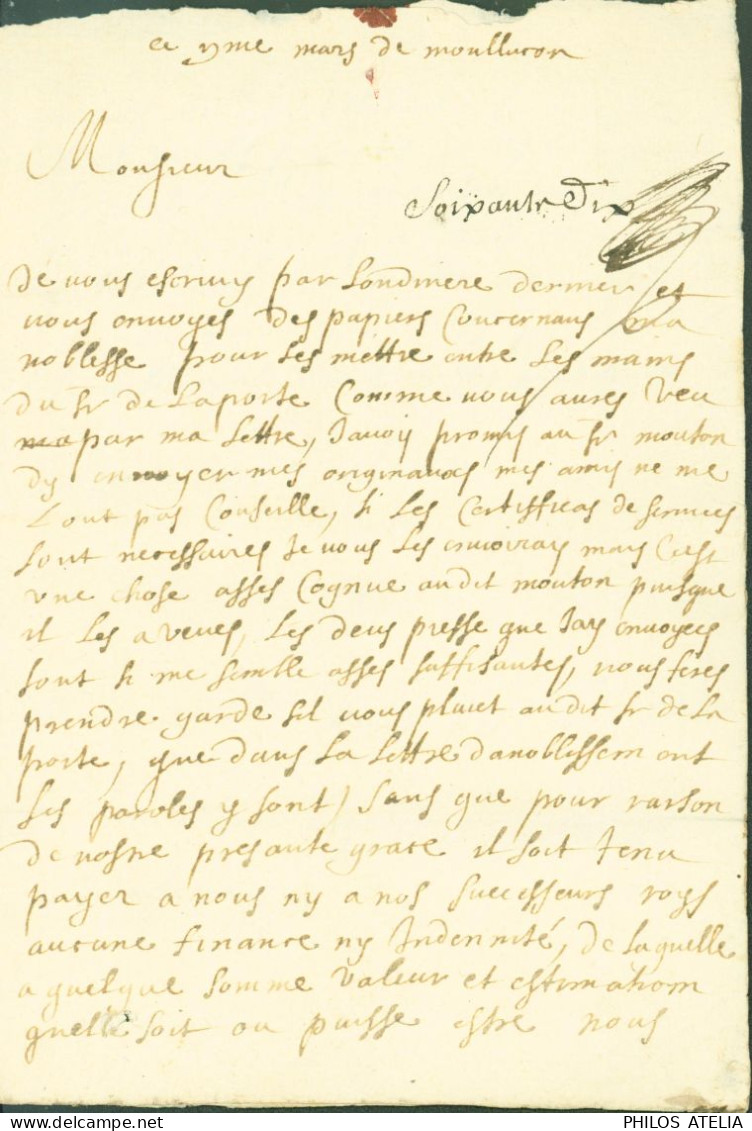 ce yme mars de moullucon
Monsieur
Soixante Dix
Je vous escrivis par Lordinere dernier et
vous envoyes des papiers Concernans ma
noblesse pour les mettre entre les mains
du sr de Laporte Comme vous aures veu
par ma Lettre, Javois promis au sr mouton
dy envoyer mes originauxs mes amis ne me
Lont pas Conseille, si Les Certifficas de services
sont necessaires Je vous Les envoiray mais Cest
une chose asses Cognue audit mouton puisque
il Les a veues, Les deus presse que Jay envoyees
sont si me semble asses suffisantes, vous feres
prendre garde sil vous pluiet audit sr de La
porte, que dans La Lettre danoblissem ont
Les paroles y sont) sans que pour raison
de nostre presante grace il soit tenu
payer a nous ny a nos successeurs roys
aucune finance ny Indennité, de laquelle
a quelque somme valeur et estimation
quelle soit ou puisse estre nous
PHILOS ATELIA